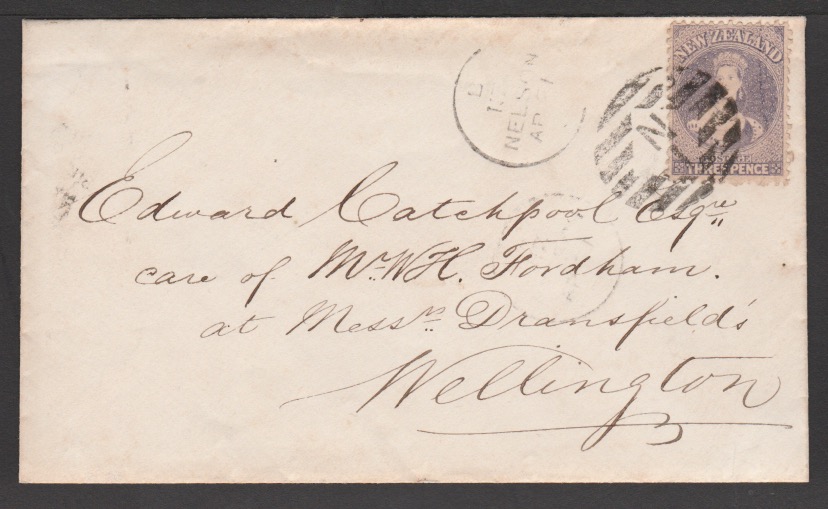 NEW ZEALAND
POSTAGE
THREE PENCE
NELSON
AP
N
Edward Catchpool Esqre
care of Mr. W. H. Fordham.
at Messrs Dransfield's
Wellington